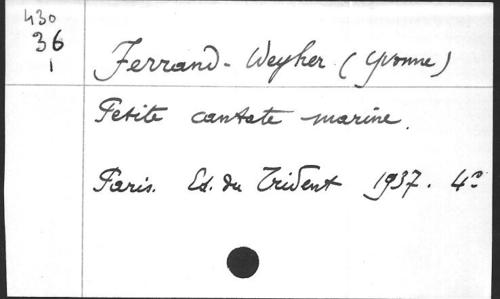 430
36
1
Ferrand-Weyher (Yvonne)
Petite cantate marine.
Paris. Ed. du Trident 1937. 4º